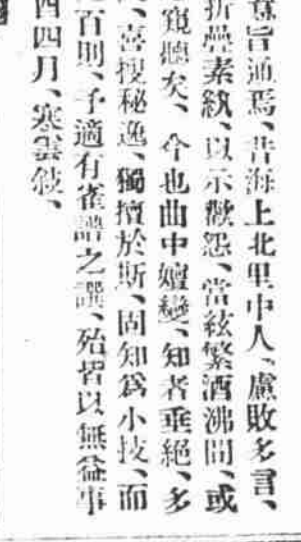 意旨通焉、昔海上北里中人、慮敗多言、
折疊素紈、以示歡怨、當絃繁酒沸間、或
窺聽矣、今也曲中嬗變、知者垂絕、多
、喜搜秘逸、獨擅於斯、固知爲小技、而
百則、予適有雀譜之譔、殆皆以無益事
酉四月、寒雲敍、